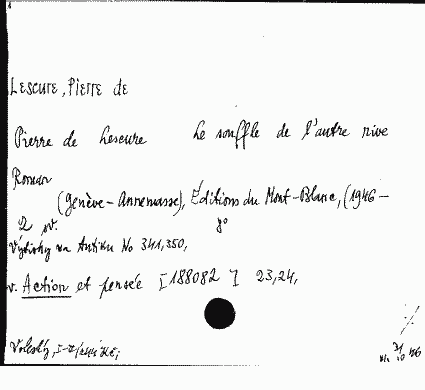 Lescure, Pierre de
Pierre de Lescure Le souffle de l'autre rive
Roman
(Genève - Annemasse), Éditions du Mont-Blanc, (1946 -
2 sv. 8°
Výtisky na Antiku No 341,350,
v. Action et pensée [188082] 23,24,
31
10